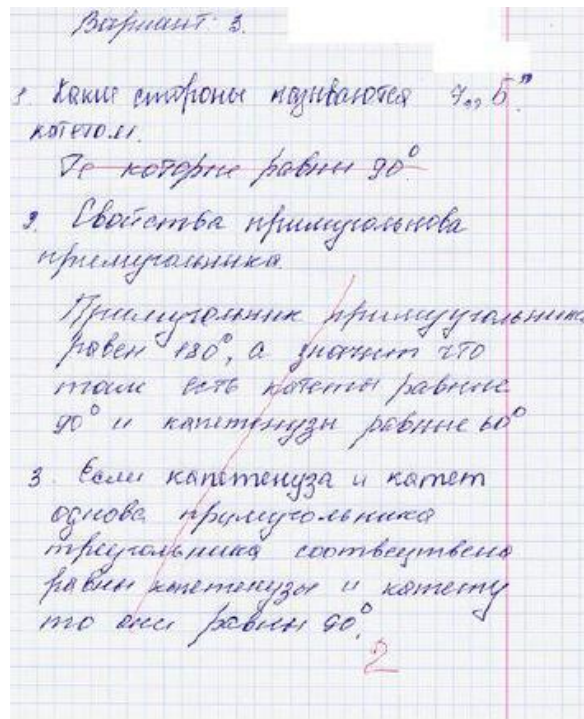 Вариант: 3.
1. Какие стороны называются 7 „Б"
катетом.
Те которые равны 90°.
2. Свойства примугольнова
примугольника.
Примугольник примуугольника
равен 180°, а значит что
там есть катеты равные
90° и капетенузы равные 60°
3. Если капетенуза и катет
однова примугольника
треугольника соотвеутвено
равны капетенузы и катету
то они равны 90°.
2